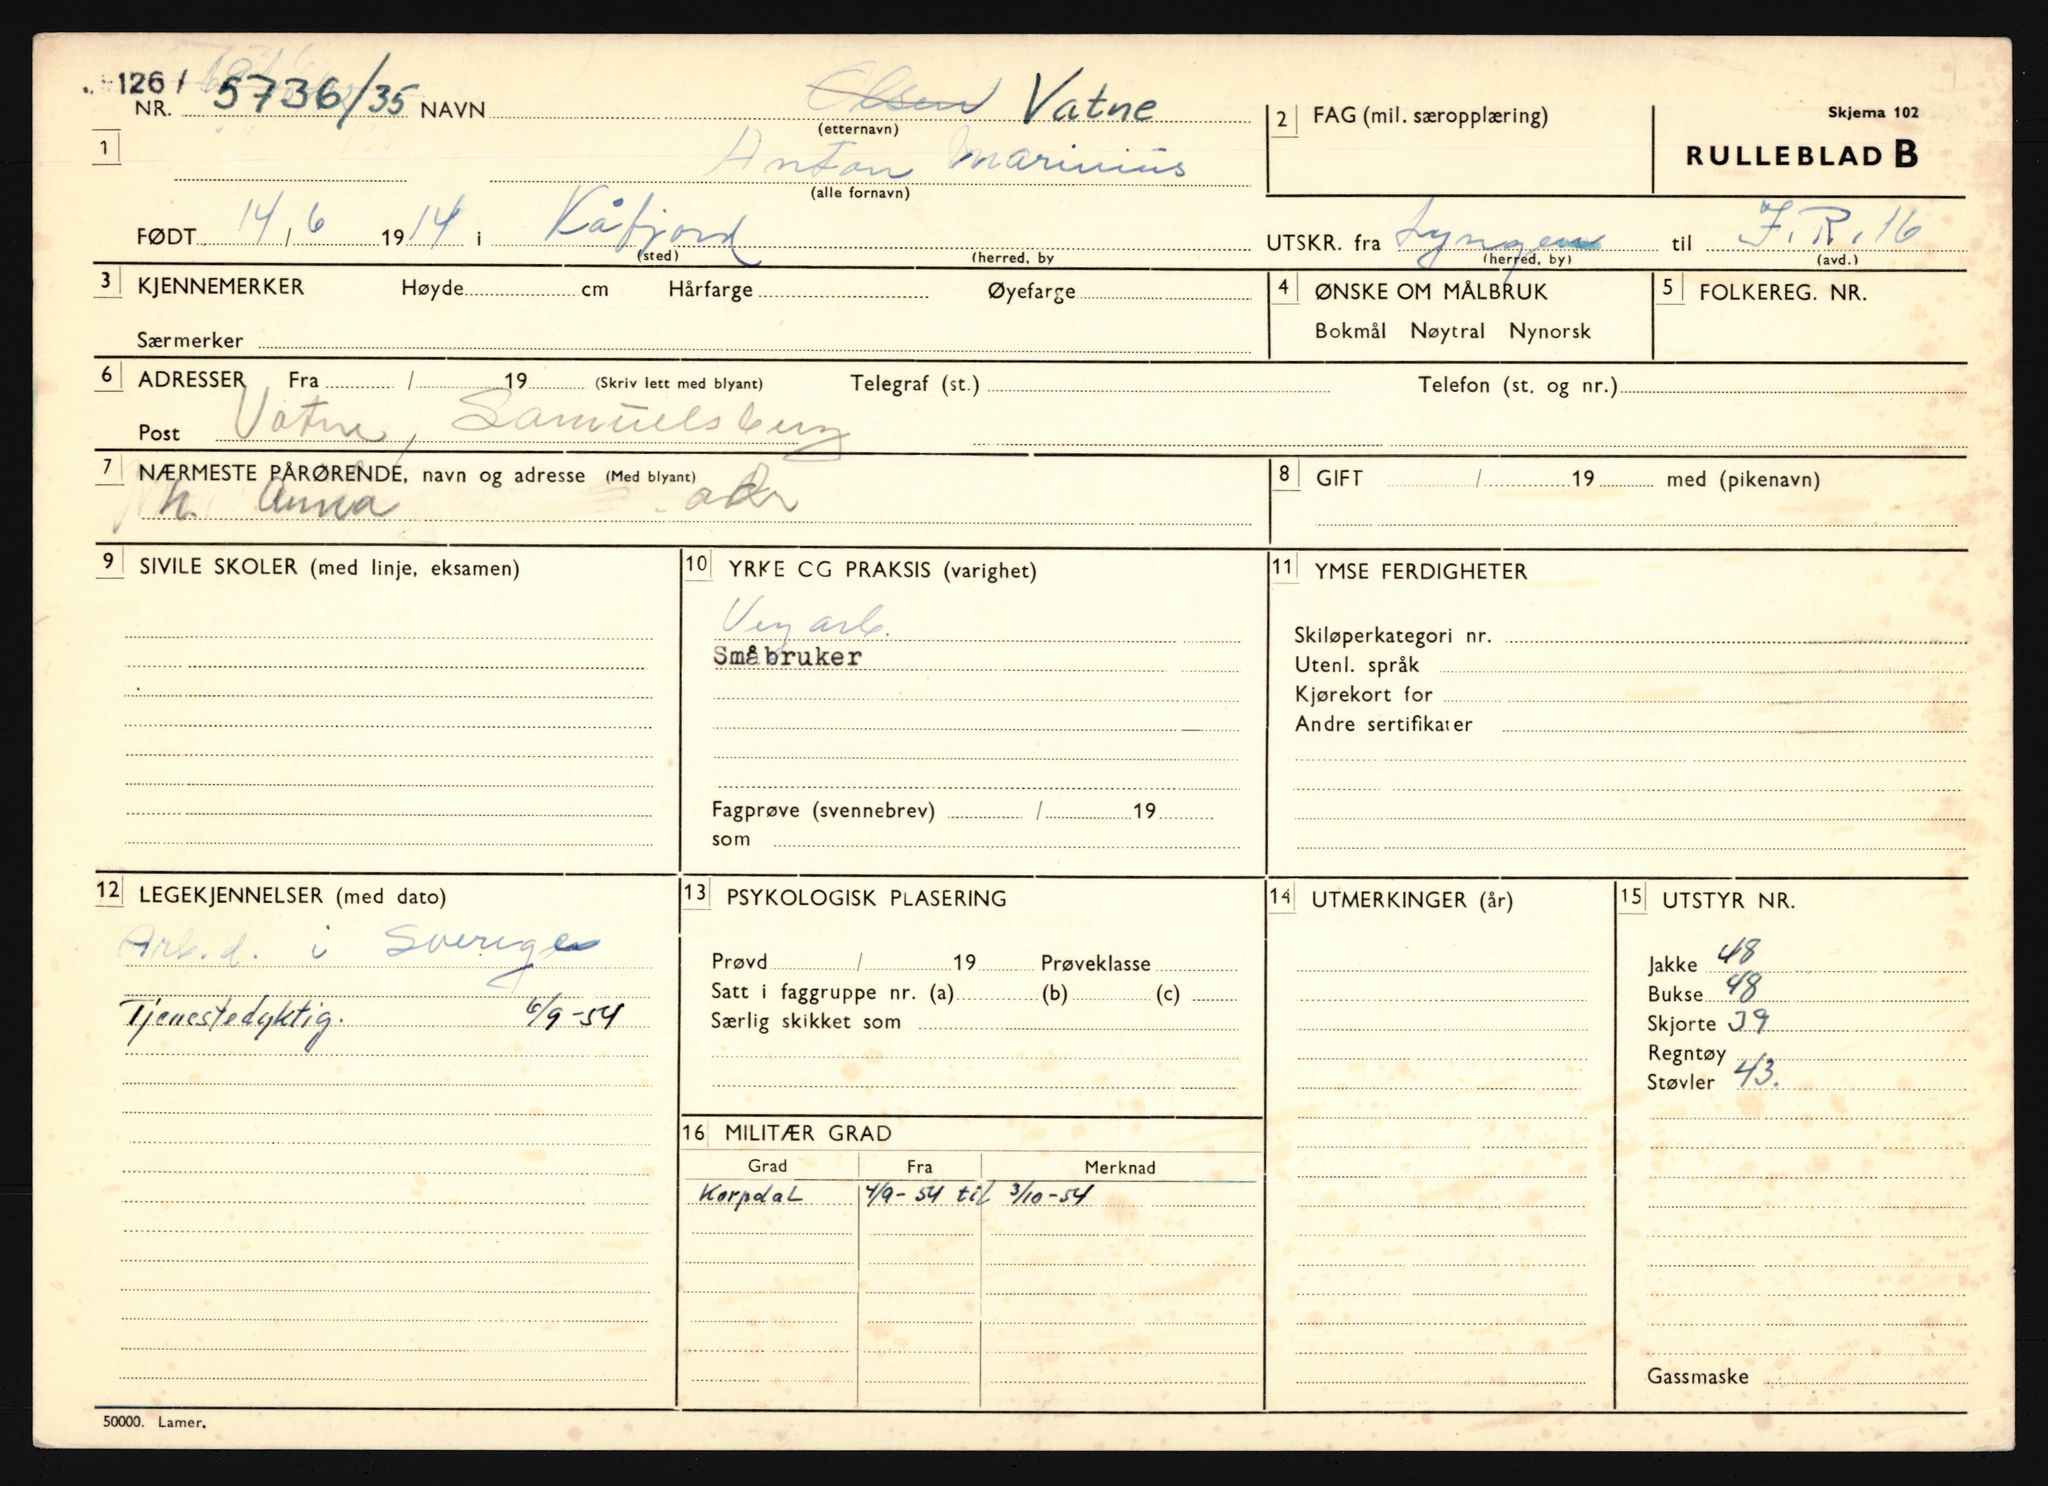 126 /
NR. 5736/35 NAVN Olsen Vatne
(etternavn)
2 FAG (mil. særopplæring)
Skjema 102
RULLEBLAD B
1
Anton Marinius
(alle fornavn)
FØDT 14 / 6 1914 i Kåfjord
(sted) (herred, by
UTSKR. fra Lyngen til I.R. 16
(herred, by) (avd.)
3 KJENNEMERKER Høyde cm Hårfarge Øyefarge
Særmerker
4 ØNSKE OM MÅLBRUK
Bokmål Nøytral Nynorsk
5 FOLKEREG. NR.
6 ADRESSER Fra / 19 (Skriv lett med blyant) Telegraf (st.) Telefon (st. og nr.)
Post Vatne, Samuelsberg
7 NÆRMESTE PÅRØRENDE, navn og adresse (Med blyant)
h. Anna adr
8 GIFT / 19 med (pikenavn)
9 SIVILE SKOLER (med linje, eksamen)
10 YRKE CG PRAKSIS (varighet)
Veg arb.
Småbruker
Fagprøve (svennebrev) / 19
som
11 YMSE FERDIGHETER
Skiløperkategori nr.
Utenl. språk
Kjørekort for
Andre sertifikater
12 LEGEKJENNELSER (med dato)
Arb.d. i Sverige
Tjenestedyktig. 6/9-54
13 PSYKOLOGISK PLASERING
Prøvd / 19 Prøveklasse
Satt i faggruppe nr. (a) (b) (c)
Særlig skikket som
14 UTMERKINGER (år)
15 UTSTYR NR.
Jakke 48
Bukse 48
Skjorte 39
Regntøy
Støvler 43.
Gassmaske
16 MILITÆR GRAD
Grad Fra Merknad
Korpdal 4/9-54 til 3/10-54
50000. Lamer.